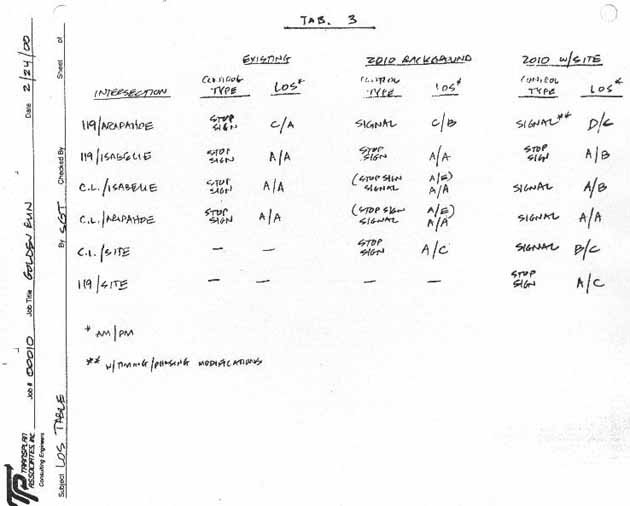 TAB. 3
EXISTING 2010 BACKGROUND 2010 W/SITE
INTERSECTION CONTROL TYPE LOS* CONTROL TYPE LOS* CONTROL TYPE LOS*
119/ARAPAHOE STOP SIGN C/A SIGNAL C/B SIGNAL** D/C
119/ISABELLE STOP SIGN A/A STOP SIGN A/A STOP SIGN A/B
C.L./ISABELLE STOP SIGN A/A (STOP SIGN A/E) SIGNAL A/A SIGNAL A/B
C.L./ARAPAHOE STOP SIGN A/A (STOP SIGN A/E) SIGNAL A/A SIGNAL A/A
C.L./SITE — — STOP SIGN A/C SIGNAL B/C
119/SITE — — — — STOP SIGN A/C
* AM/PM
** W/TIMING/PHASING MODIFICATIONS
TRANSPLAN
ASSOCIATES, INC.
Consulting Engineers
Job # 00010 Job Title GOLDEN RUN Date 2/24/00
Subject LOS TABLE By SGT Checked By Sheet of